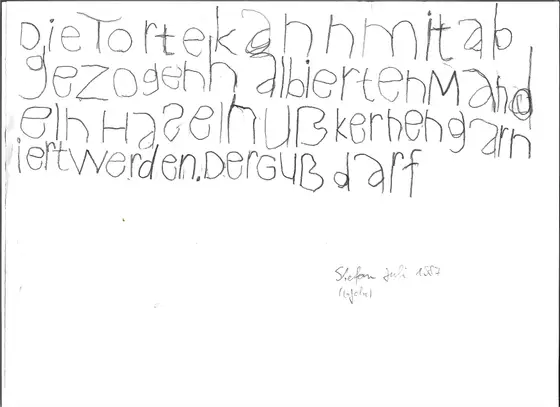 DieTortekannmitab
gezogenh albiertenMand
elnHaselnußkernengarn
iertwerden.DerGuß darf
Stefan Juli 1987